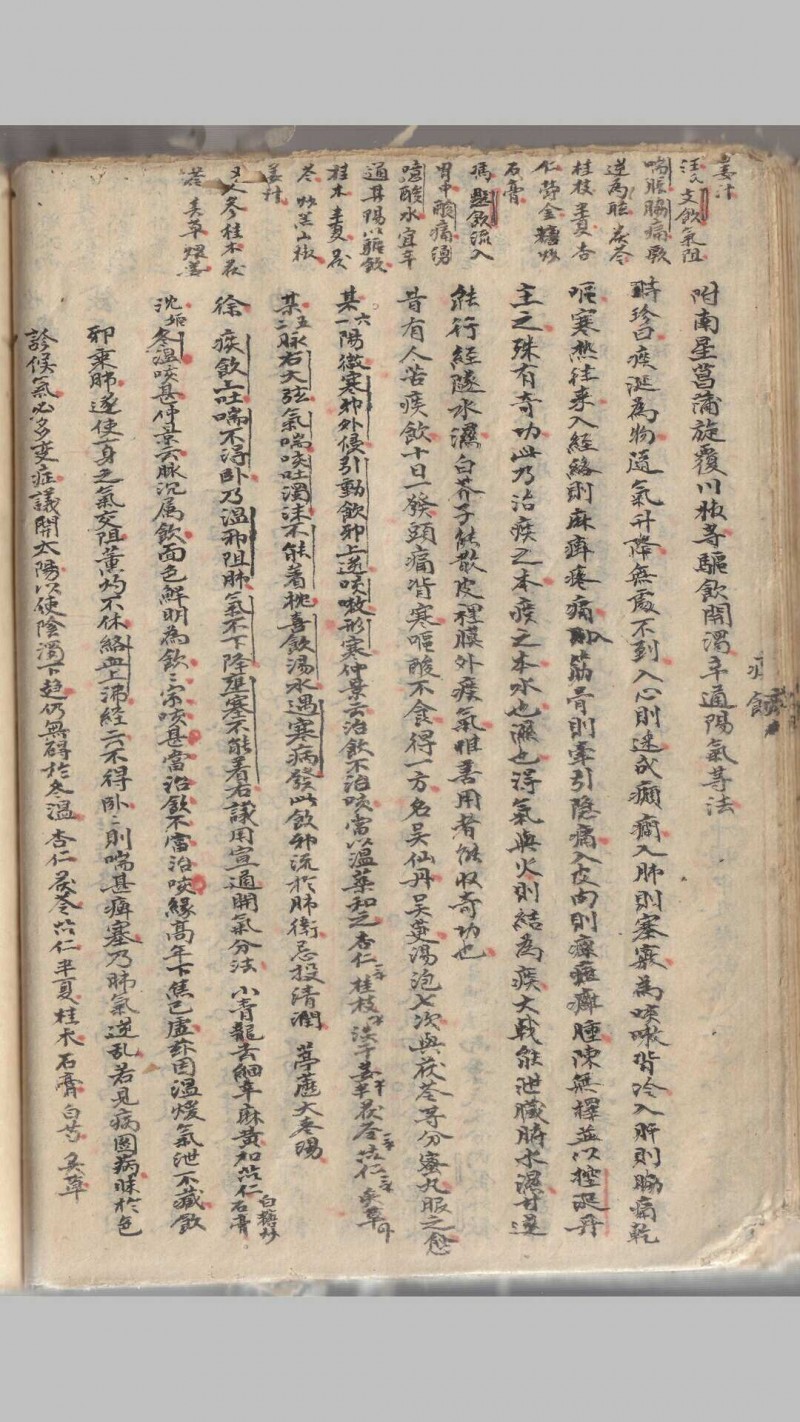 姜汁
汪 支飲氣阻
喘脹脇痛咳
逆為脹 茯苓
桂枝 半夏 杏
仁 欝金 糖炒
石膏
馮 懸飲流入
胃中酸痛湧
噫酸水 宜辛
通其陽以驅飲
桂木 半夏 茯
苓 炒黑川椒
姜汁
又 人參 桂木 茯
苓 炙草 煨姜
痰飲
附南星菖蒲旋覆川椒等驅飲開濁辛通陽氣等法
時珍曰痰涎為物隨氣升降無處不到入心則迷成癲癇入肺則塞竅為咳嗽背冷入肝則脇痛乾
嘔寒熱往來入經絡則麻痺疼痛入筋骨則牽引隱痛入皮肉則瘰癧癰腫陳無擇並以控涎丹
主之殊有奇功此乃治痰之本痰之本水也濕也得氣與火則結為痰大戟能泄臟腑水濕甘遂
能行經隧水濕白芥子能散皮裡膜外痰氣惟善用者能收奇功也
昔有人苦痰飲十日一發頭痛背寒嘔酸不食得一方名吳仙丹吳萸湯泡七次與茯苓等分蜜丸服之愈
某 六一 陽微寒邪外侵引動飲邪上逆咳嗽形寒仲景云治飲不治咳當以溫藥和之杏仁 桂枝 淡干姜 茯苓 苡仁 炙草
某 五二 脉右大弦氣喘咳吐濁沫不能着枕喜飲湯水遇寒病發此飲邪流於肺衛忌投清潤 葶藶大棗湯
徐 痰飲上吐喘不得卧乃溫邪阻肺氣不下降壅塞不能着右議用宣通開氣分法 小青龍去細辛麻黃加苡仁 白糖炒石膏
沈妪 冬溫咳甚仲景云脉沉屬飲面色鮮明為飲飲家咳甚當治飲不當治咳緣高年下焦已虛卧因溫煖氣泄不藏飲
邪乘肺遂使一身之氣交阻薰灼不休絡血上沸經云不得卧卧則喘甚痺塞乃肺氣逆乱若見病圖病昧於色
診候氣必多變症議開太陽以使陰濁下趨仍無碍於冬溫 杏仁 茯苓 苡仁 半夏 桂木 石膏 白芍 炙草